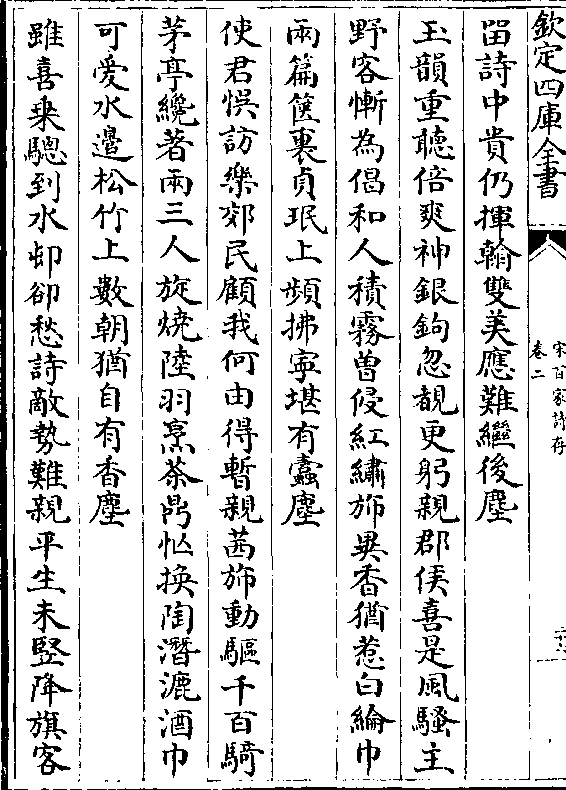 欽定四庫全書
宋百家詩存
卷二
畱詩中貴仍揮翰雙美應難繼後塵
玉韻重聽倍爽神銀鉤忽覩更躬親郡侯喜是風騷主
野客慚為倡和人積霧曽侵紅繡斾異香猶惹白綸巾
兩篇篋裏貞珉上頻拂寧堪有蠧塵
使君悞訪樂郊民顧我何由得暫親茜斾動驅千百騎
茅亭纔著兩三人旋燒陸羽烹茶鼎忙換陶潛漉酒巾
可愛水邉松竹上數朝猶自有香塵
雖喜乗驄到水邨卻愁詩敵勢難親平生未竪降旗客